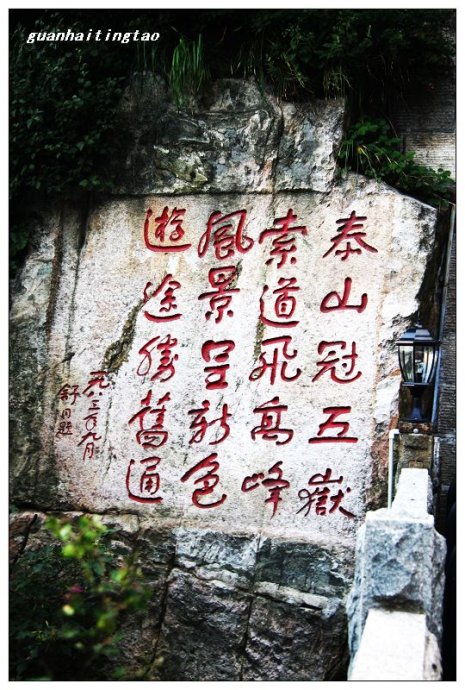 guanhaitingtao
泰山冠五嶽
索道飛高峰
風景呈新色
遊途勝舊通
一九八三年九月
舒同題